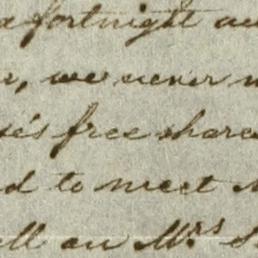 a fortnight
we never
free share
d to meet
ll on Mrs S